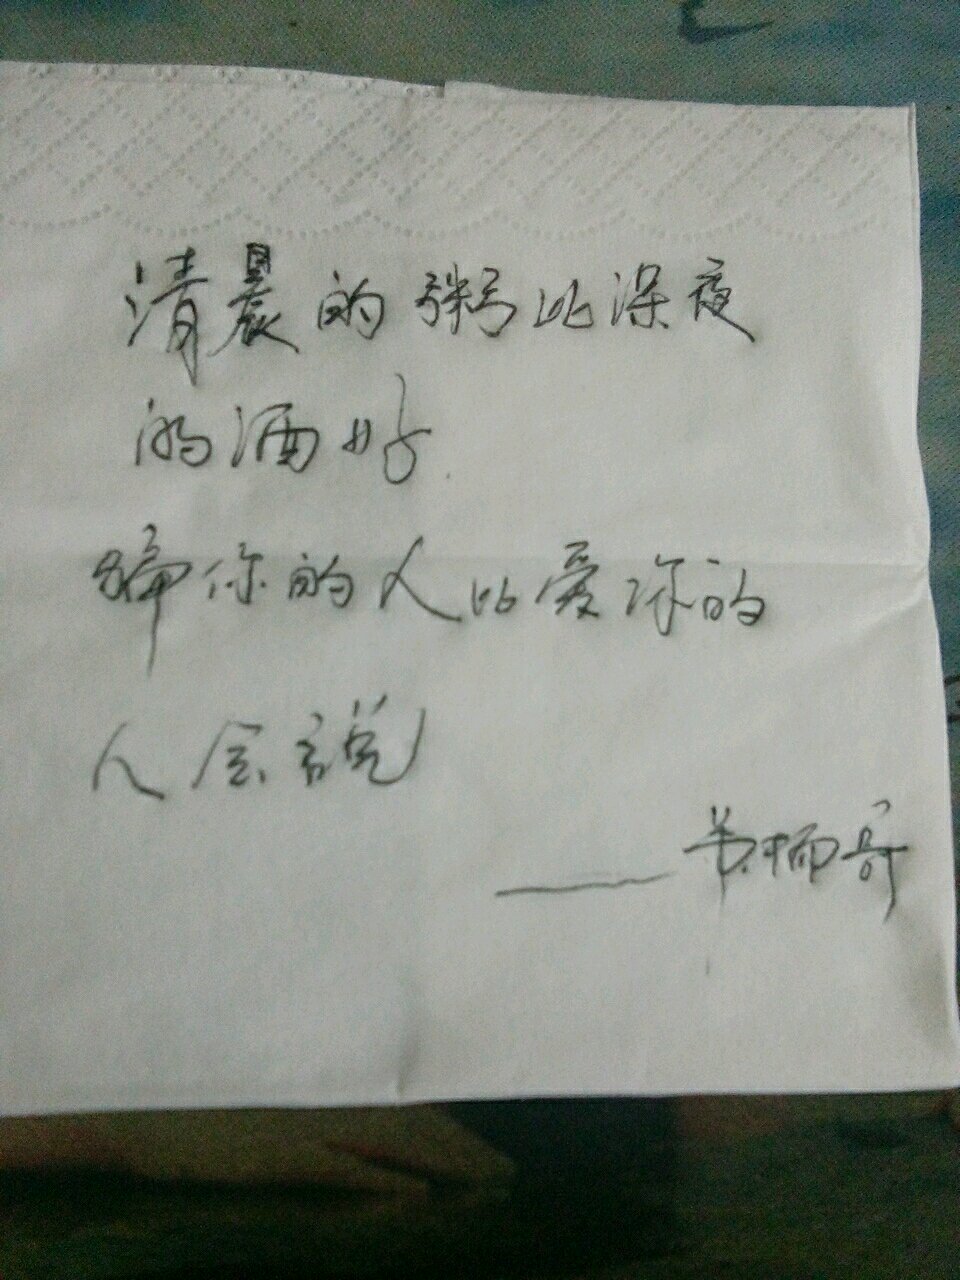 清晨的粥比深夜
的酒好.
骗你的人比爱你的
人会说
哥